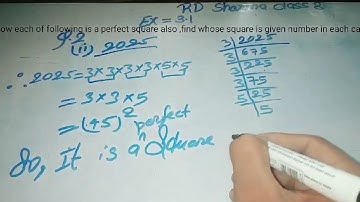 RD Sharma Class 8
Ex = 3.1
ow each of following is a perfect square also ,find whose square is given number in each ca
Q.2
(ii) 2025
∴ 2025 = 3×3×3×3×5×5
= 3×3×5
= (45)²
So, It is a perfect Square
3 2025
3 675
3 225
3 75
5 25
5